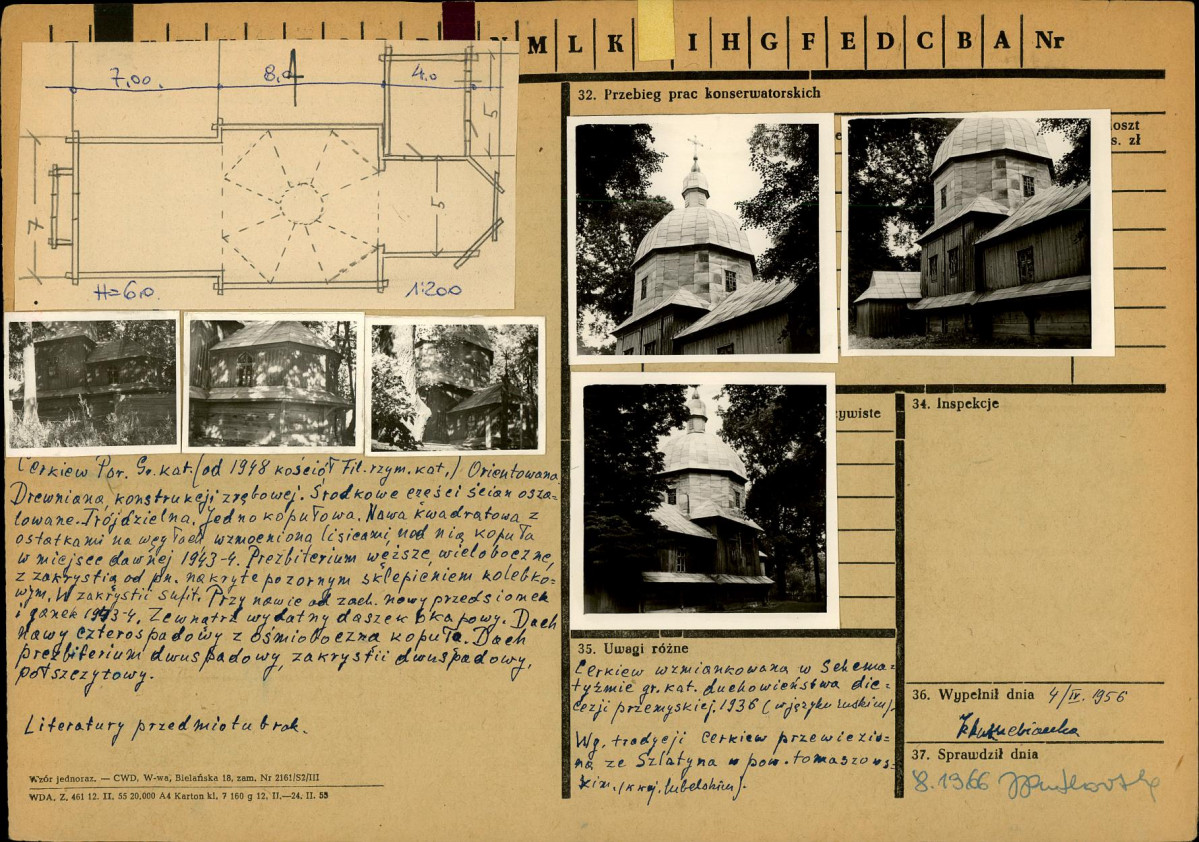 M L K I H G F E D C B A Nr
7,00. 8,0 4,0
5
7
5
H=6,0 1:200
32. Przebieg prac konserwatorskich
oszt
s. zł
Cerkiew Par. Gr. kat. (od 1948 kościół Fil. rzym. kat.) Orientowana
Drewniana, konstrukcji zrębowej. Środkowe części ścian osza-
lowane. Trójdzielna, jednokopułowa. Nawa kwadratowa z
ostatkami na węgłach wzmocniona lisicami, nad nią kopuła
w miejsce dawnej 1943-4. Prezbiterium węższe, wieloboczne,
z zakrystią od pn. nakryte pozornym sklepieniem kolebko-
wym. W zakrystii sufit. Przy nawie od zach. nowy przedsionek
i ganek 1943-4. Zewnątrz wydatny daszek okapowy. Dach
nawy czterospadowy z ośmioboczną kopułą. Dach
prezbiterium dwuspadowy, zakrystii dwuspadowy,
półszczytowy.
Literatury przedmiotu brak.
Wzór jednoraz. — CWD, W-wa, Bielańska 18, zam. Nr 2161/S2/III
WDA, Z. 461 12. II. 55 20,000 A4 Karton kl. 7 160 g 12. II.—24. II. 55
zywiste
34. Inspekcje
35. Uwagi różne
Cerkiew wzmiankowana w Schema-
tyzmie gr. kat. duchowieństwa die-
cezji przemyskiej. 1936 (w języku ruskim).
Wg. tradycji Cerkiew przewiezio-
na ze Szlatyna w pow. tomaszows-
kim. (woj. lubelskim).
36. Wypełnił dnia 4/IV. 1956
37. Sprawdził dnia
8.1966